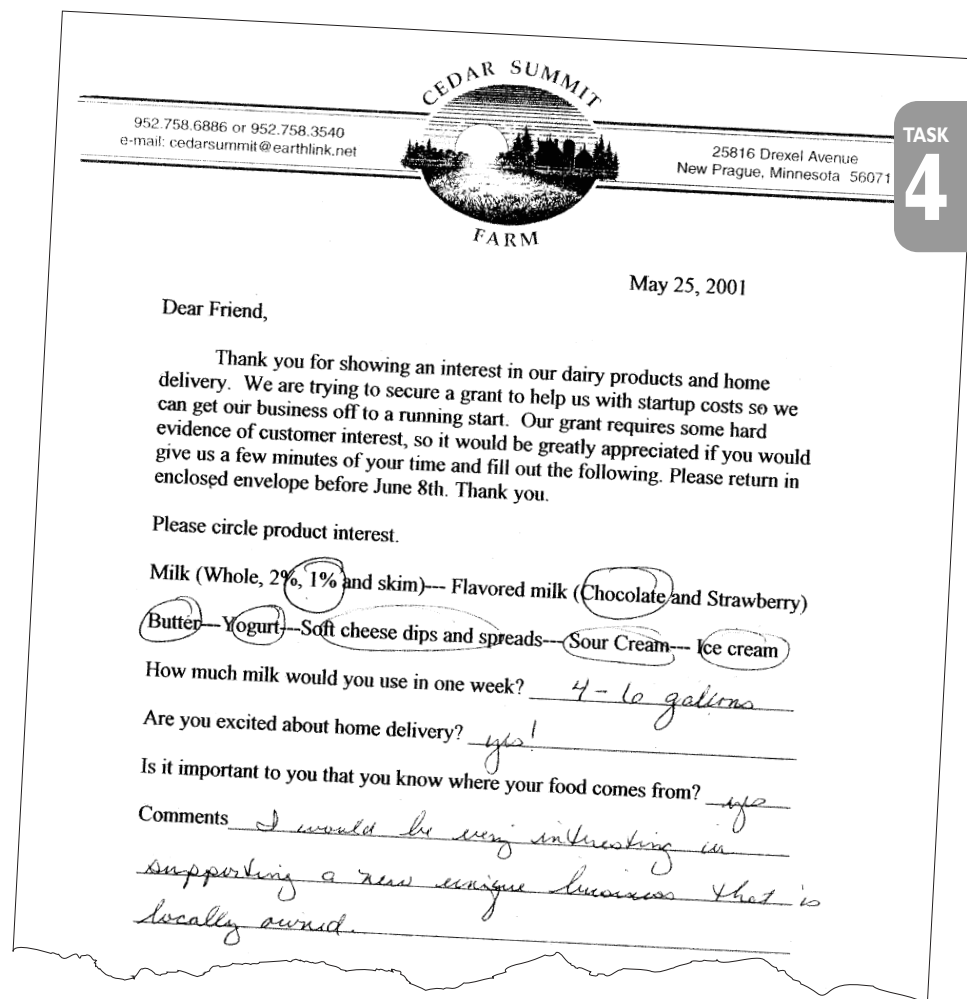 CEDAR SUMMIT
FARM
952.758.6886 or 952.758.3540
e-mail: cedarsummit@earthlink.net
25816 Drexel Avenue
New Prague, Minnesota 56071
TASK
4
May 25, 2001
Dear Friend,
Thank you for showing an interest in our dairy products and home
delivery. We are trying to secure a grant to help us with startup costs so we
can get our business off to a running start. Our grant requires some hard
evidence of customer interest, so it would be greatly appreciated if you would
give us a few minutes of your time and fill out the following. Please return in
enclosed envelope before June 8th. Thank you.
Please circle product interest.
Milk (Whole, 2%, 1% and skim)--- Flavored milk (Chocolate and Strawberry)
Butter---Yogurt---Soft cheese dips and spreads---Sour Cream--- Ice cream
How much milk would you use in one week? 4 - 6 gallons
Are you excited about home delivery? yes!
Is it important to you that you know where your food comes from? yes
Comments I would be very interesting in
supporting a new unique business that is
locally owned.